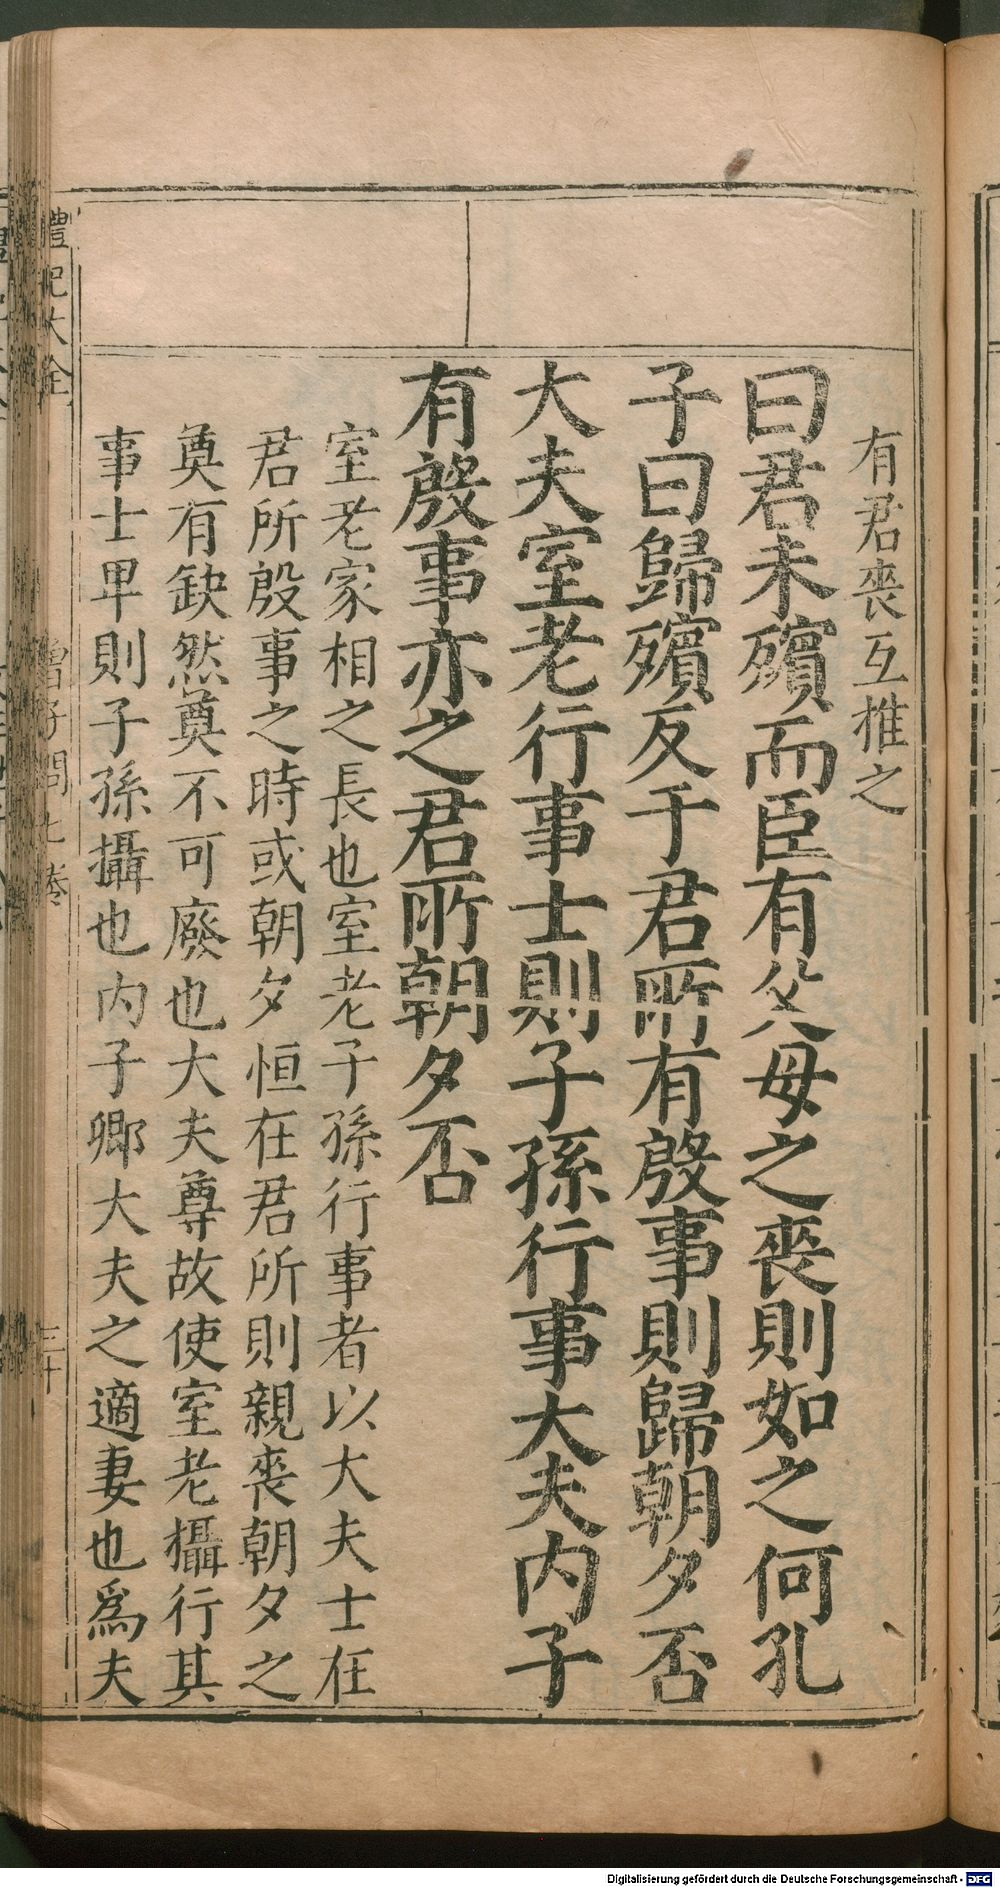 有君喪互推之
曰君未殯而臣有父母之喪則如之何孔
子曰歸殯反于君所有殷事則歸朝夕否
大夫室老行事士則子孫行事大夫内子
有殷事亦之君所朝夕否
室老家相之長也室老子孫行事者以大夫士在
君所殷事之時或朝夕恒在君所則親喪朝夕之
奠有缺然奠不可廢也大夫尊故使室老攝行其
事士卑則子孫攝也内子卿大夫之適妻也爲夫
禮記大全
曾子問七卷
三十
Digitalisierung gefördert durch die Deutsche Forschungsgemeinschaft - DFG